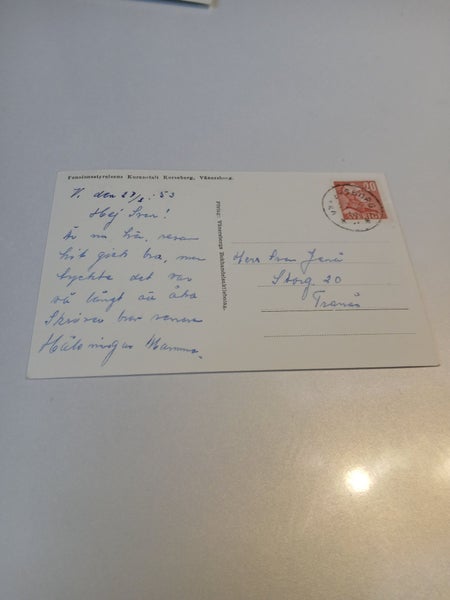 Pensionsstyrelsens Kuranstalt Korseberg, Vänersborg.
V. den 27/2. 53
Hej Sven!
Är nu här, resan
hit gick bra, men
tyckte det var
så långt åå åka
Skriver brev senare
Hälsningar Mamma.
Förlag: Vänersborgs Bokhandelsaktiebolag.
20
SVERIGE
Herr Sven
Storg. 20
Tranås